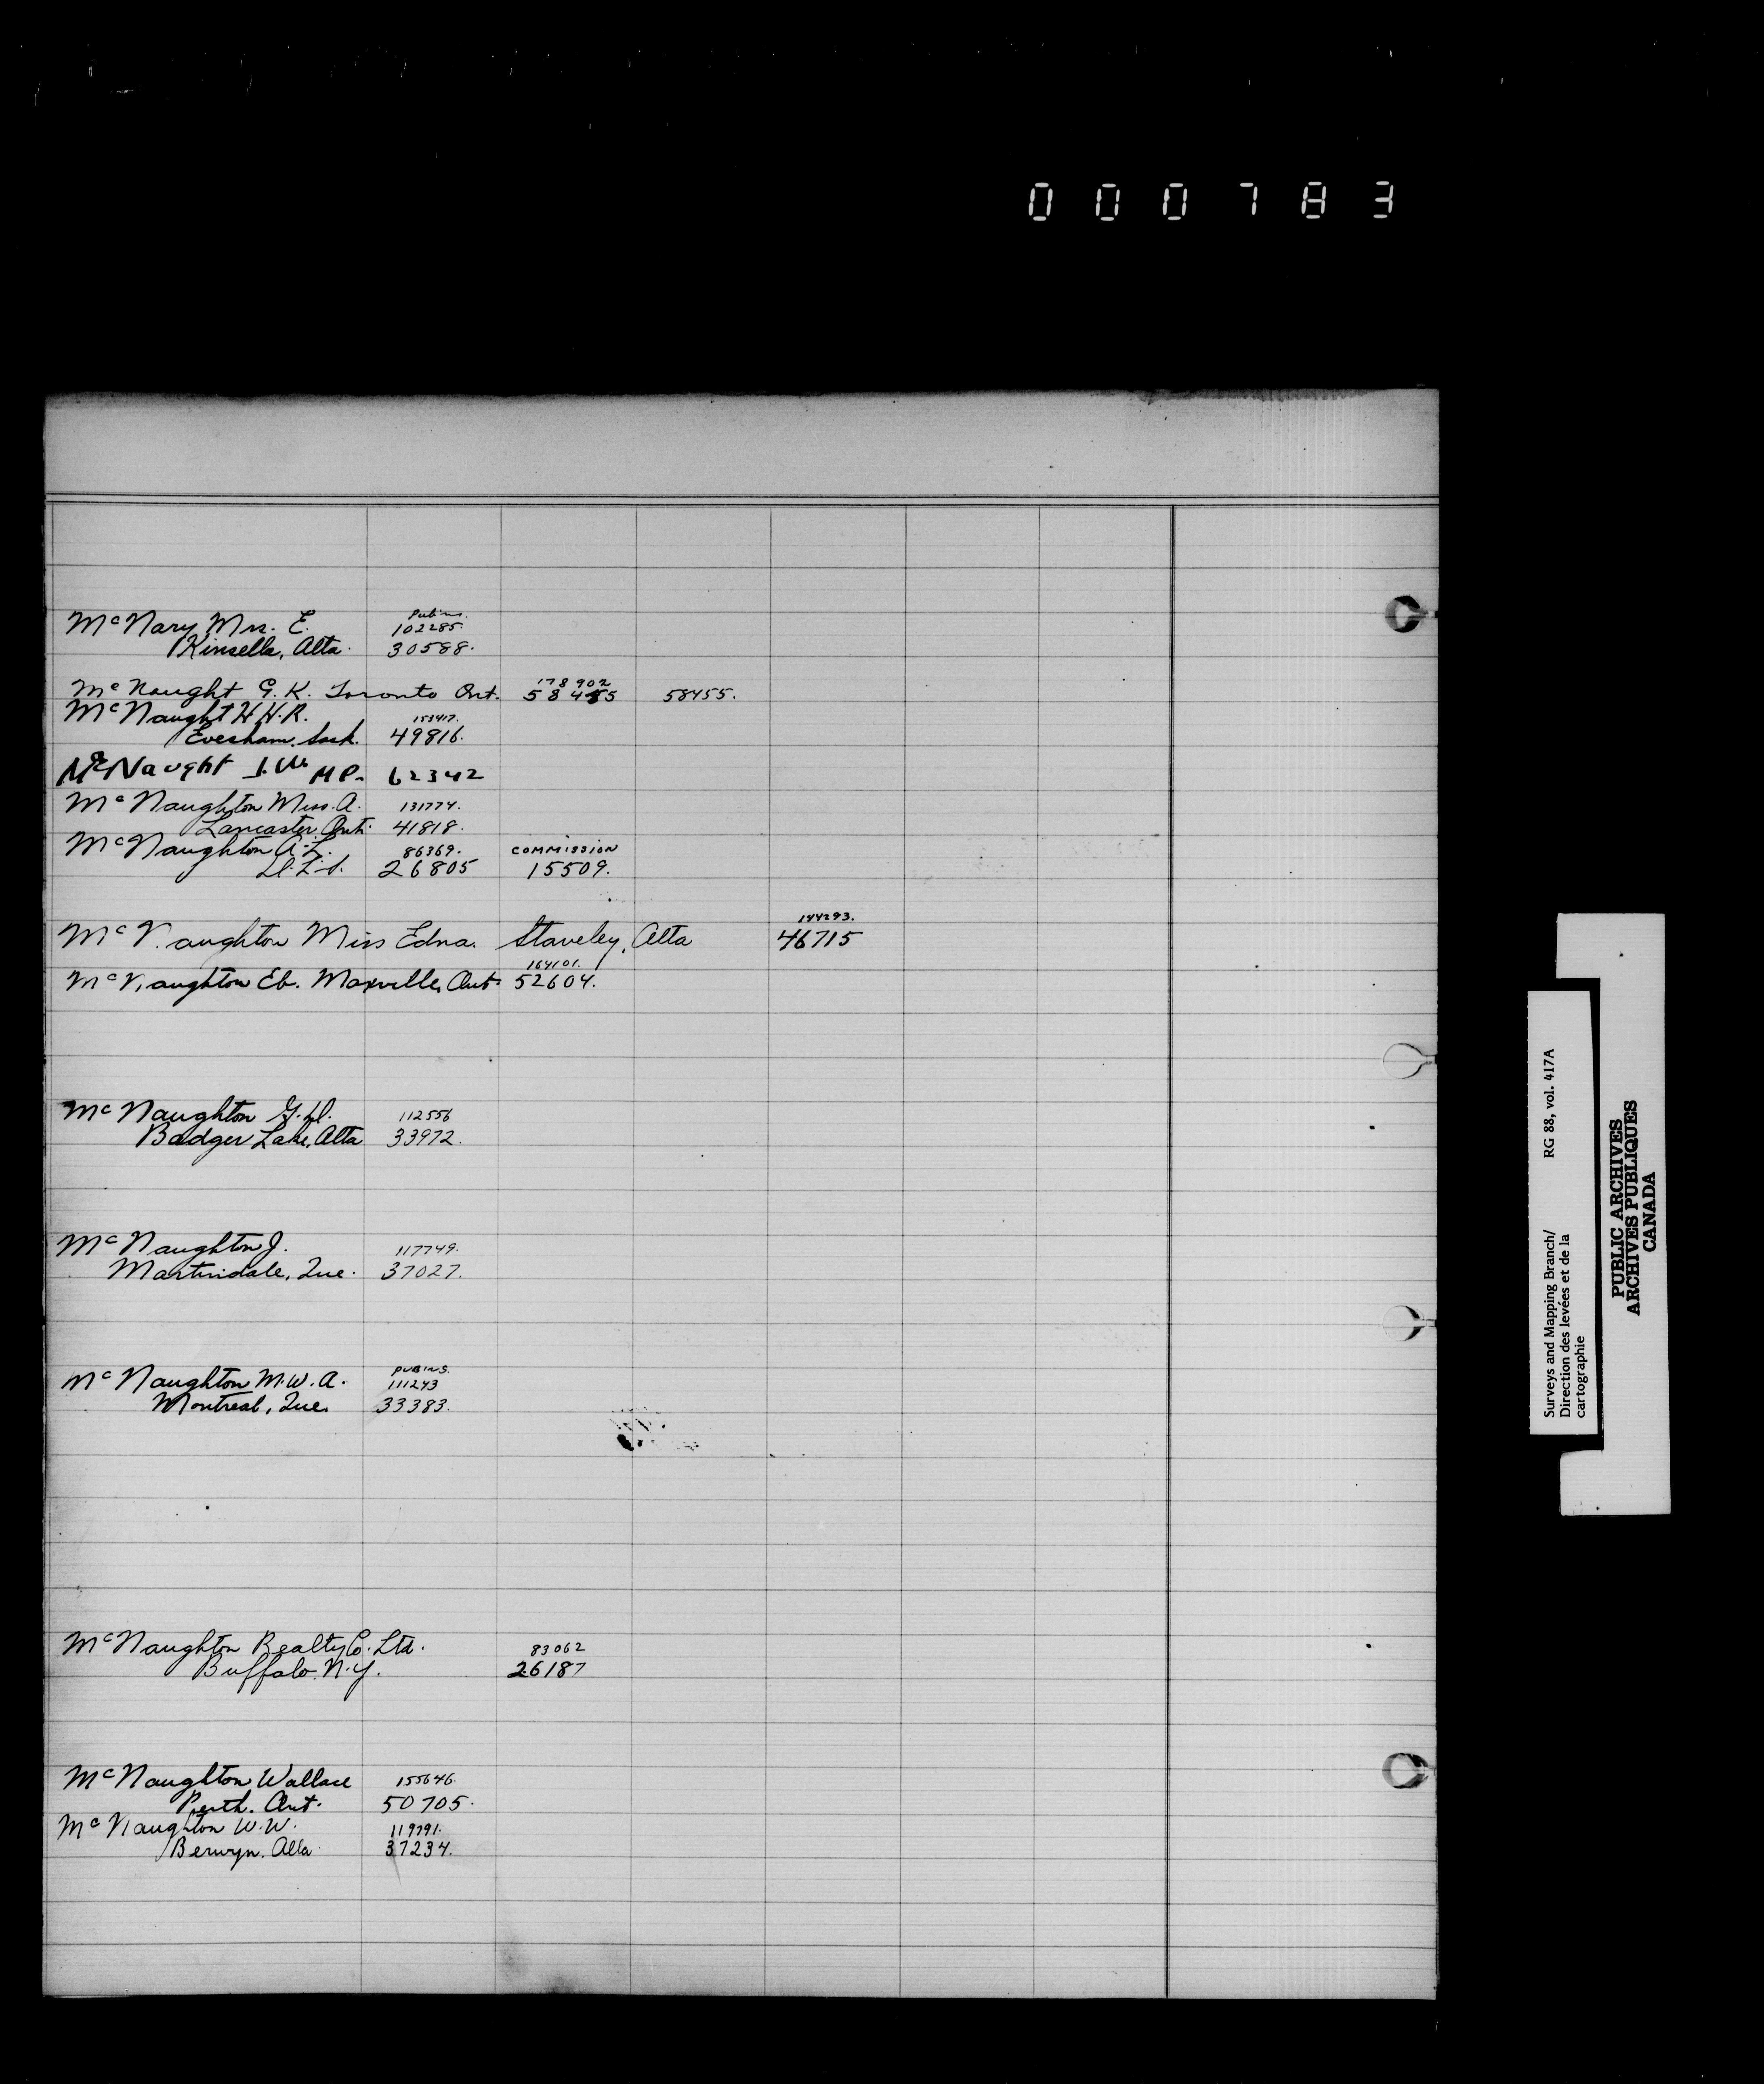 000783
Pub'ns.
McNary Mrs. E. 102285.
Kinsella, Alta. 30588.
178902
McNaught G. K. Toronto Ont. 58455 58455.
McNaught H.H.R. 153417.
Evesham, Sask. 49816.
McNaught J.W. M.P. 62342
McNaughton Miss. A. 131774.
Lancaster, Ont. 41818.
McNaughton A.L. 86369. COMMISSION
D.L.S. 26805 15509.
144293.
McNaughton Miss Edna. Staveley, Alta 46715
164101.
McNaughton Eb. Maxville, Ont. 52604.
McNaughton G.D. 112556
Badger Lake, Alta 33972.
McNaughton J. 117749.
Martindale, Que. 37027.
PUB'NS.
McNaughton M.W.A. 111243
Montreal, Que. 33383.
McNaughton Realty Co. Ltd. 83062
Buffalo, N.Y. 26187
McNaughton Wallace 155646.
Perth. Ont. 50705.
McNaughton W.W. 119791.
Berwyn, Alta. 37234.
Surveys and Mapping Branch/ RG 88, vol. 417A
Direction des levées et de la
cartographie
PUBLIC ARCHIVES
ARCHIVES PUBLIQUES
CANADA